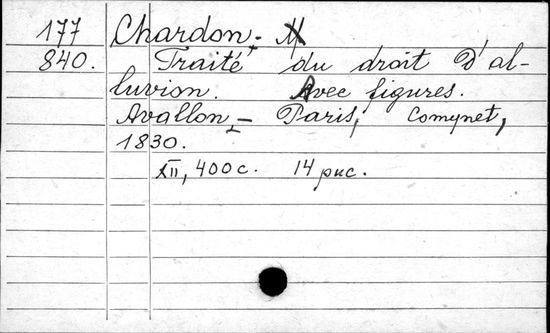 177 Chardon - M
840. Traité du droit D'al-
luvion. Avec figures.
Avallon - Paris, Comynet,
1830.
XII, 400 c. 14 рис.